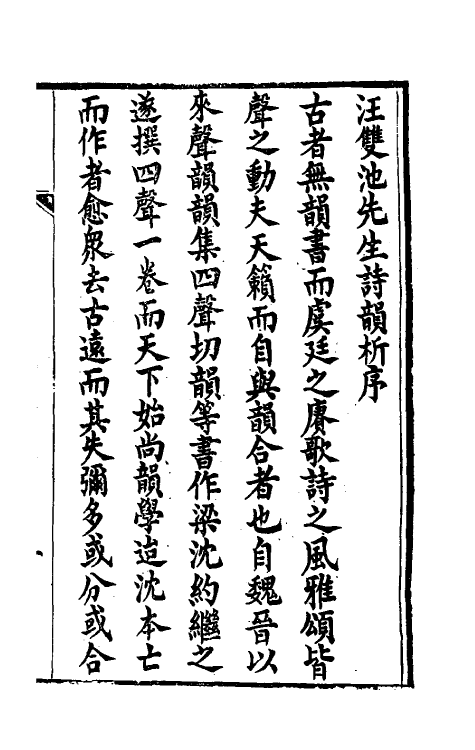 汪雙池先生詩韻析序
古者無韻書而虞廷之賡歌詩之風雅頌皆
聲之動夫天籟而自與韻合者也自魏晉以
來聲韻韻集四聲切韻等書作梁沈約繼之
遂撰四聲一卷而天下始尚韻學迨沈本亡
而作者愈衆去古遠而其失彌多或分或合